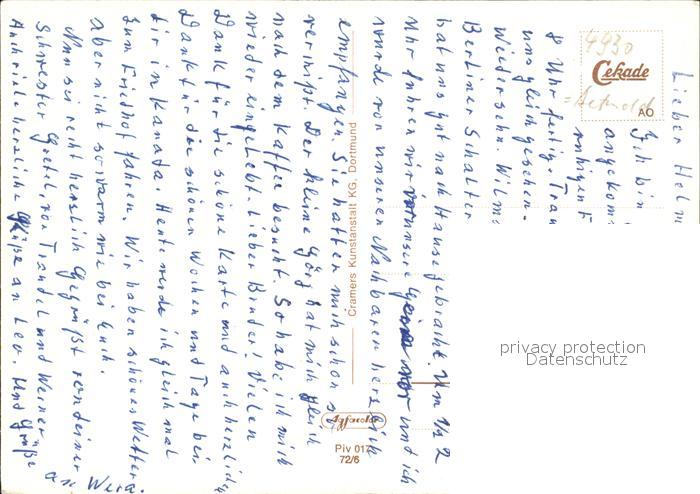 Lieber Helm
Ich bin
angekom
ruhigen F
8 Uhr fertig. Frau
uns gleich gesehen.
Wiedersehn. Wilm
Berliner Schalter
hat uns gut nach Hause gebracht. Um 1/2 2
Uhr fuhren wir vor unsere und ich
wurde von unseren Nachbaren herzlich
empfangen. Sie hatten mich schon
vermißt. Der kleine Görg hat mich gleich
nach dem Kaffee besucht. So habe ich mich
wieder eingelebt. Lieber Bruder! Vielen
Dank für die schöne Karte und auch herzlichen
Dank für die schönen Wochen und Tage bei
dir in Kanada. Heute werde ich gleich mal
zum Friedhof fahren. Wir haben schönes Wetter
aber nicht so warm wie bei Euch.
Nun sei recht herzlich Gegrüßt von deiner
Schwester Gretil, von Traudel und Werner
Auch viele herzliche Grüße an Leo. Und Grüße
an Wera.
4930
Cekade
= Detmold
AO
Cramers Kunstanstalt KG, Dortmund
Agfacolor
Piv 017
72/6
privacy protection
Datenschutz